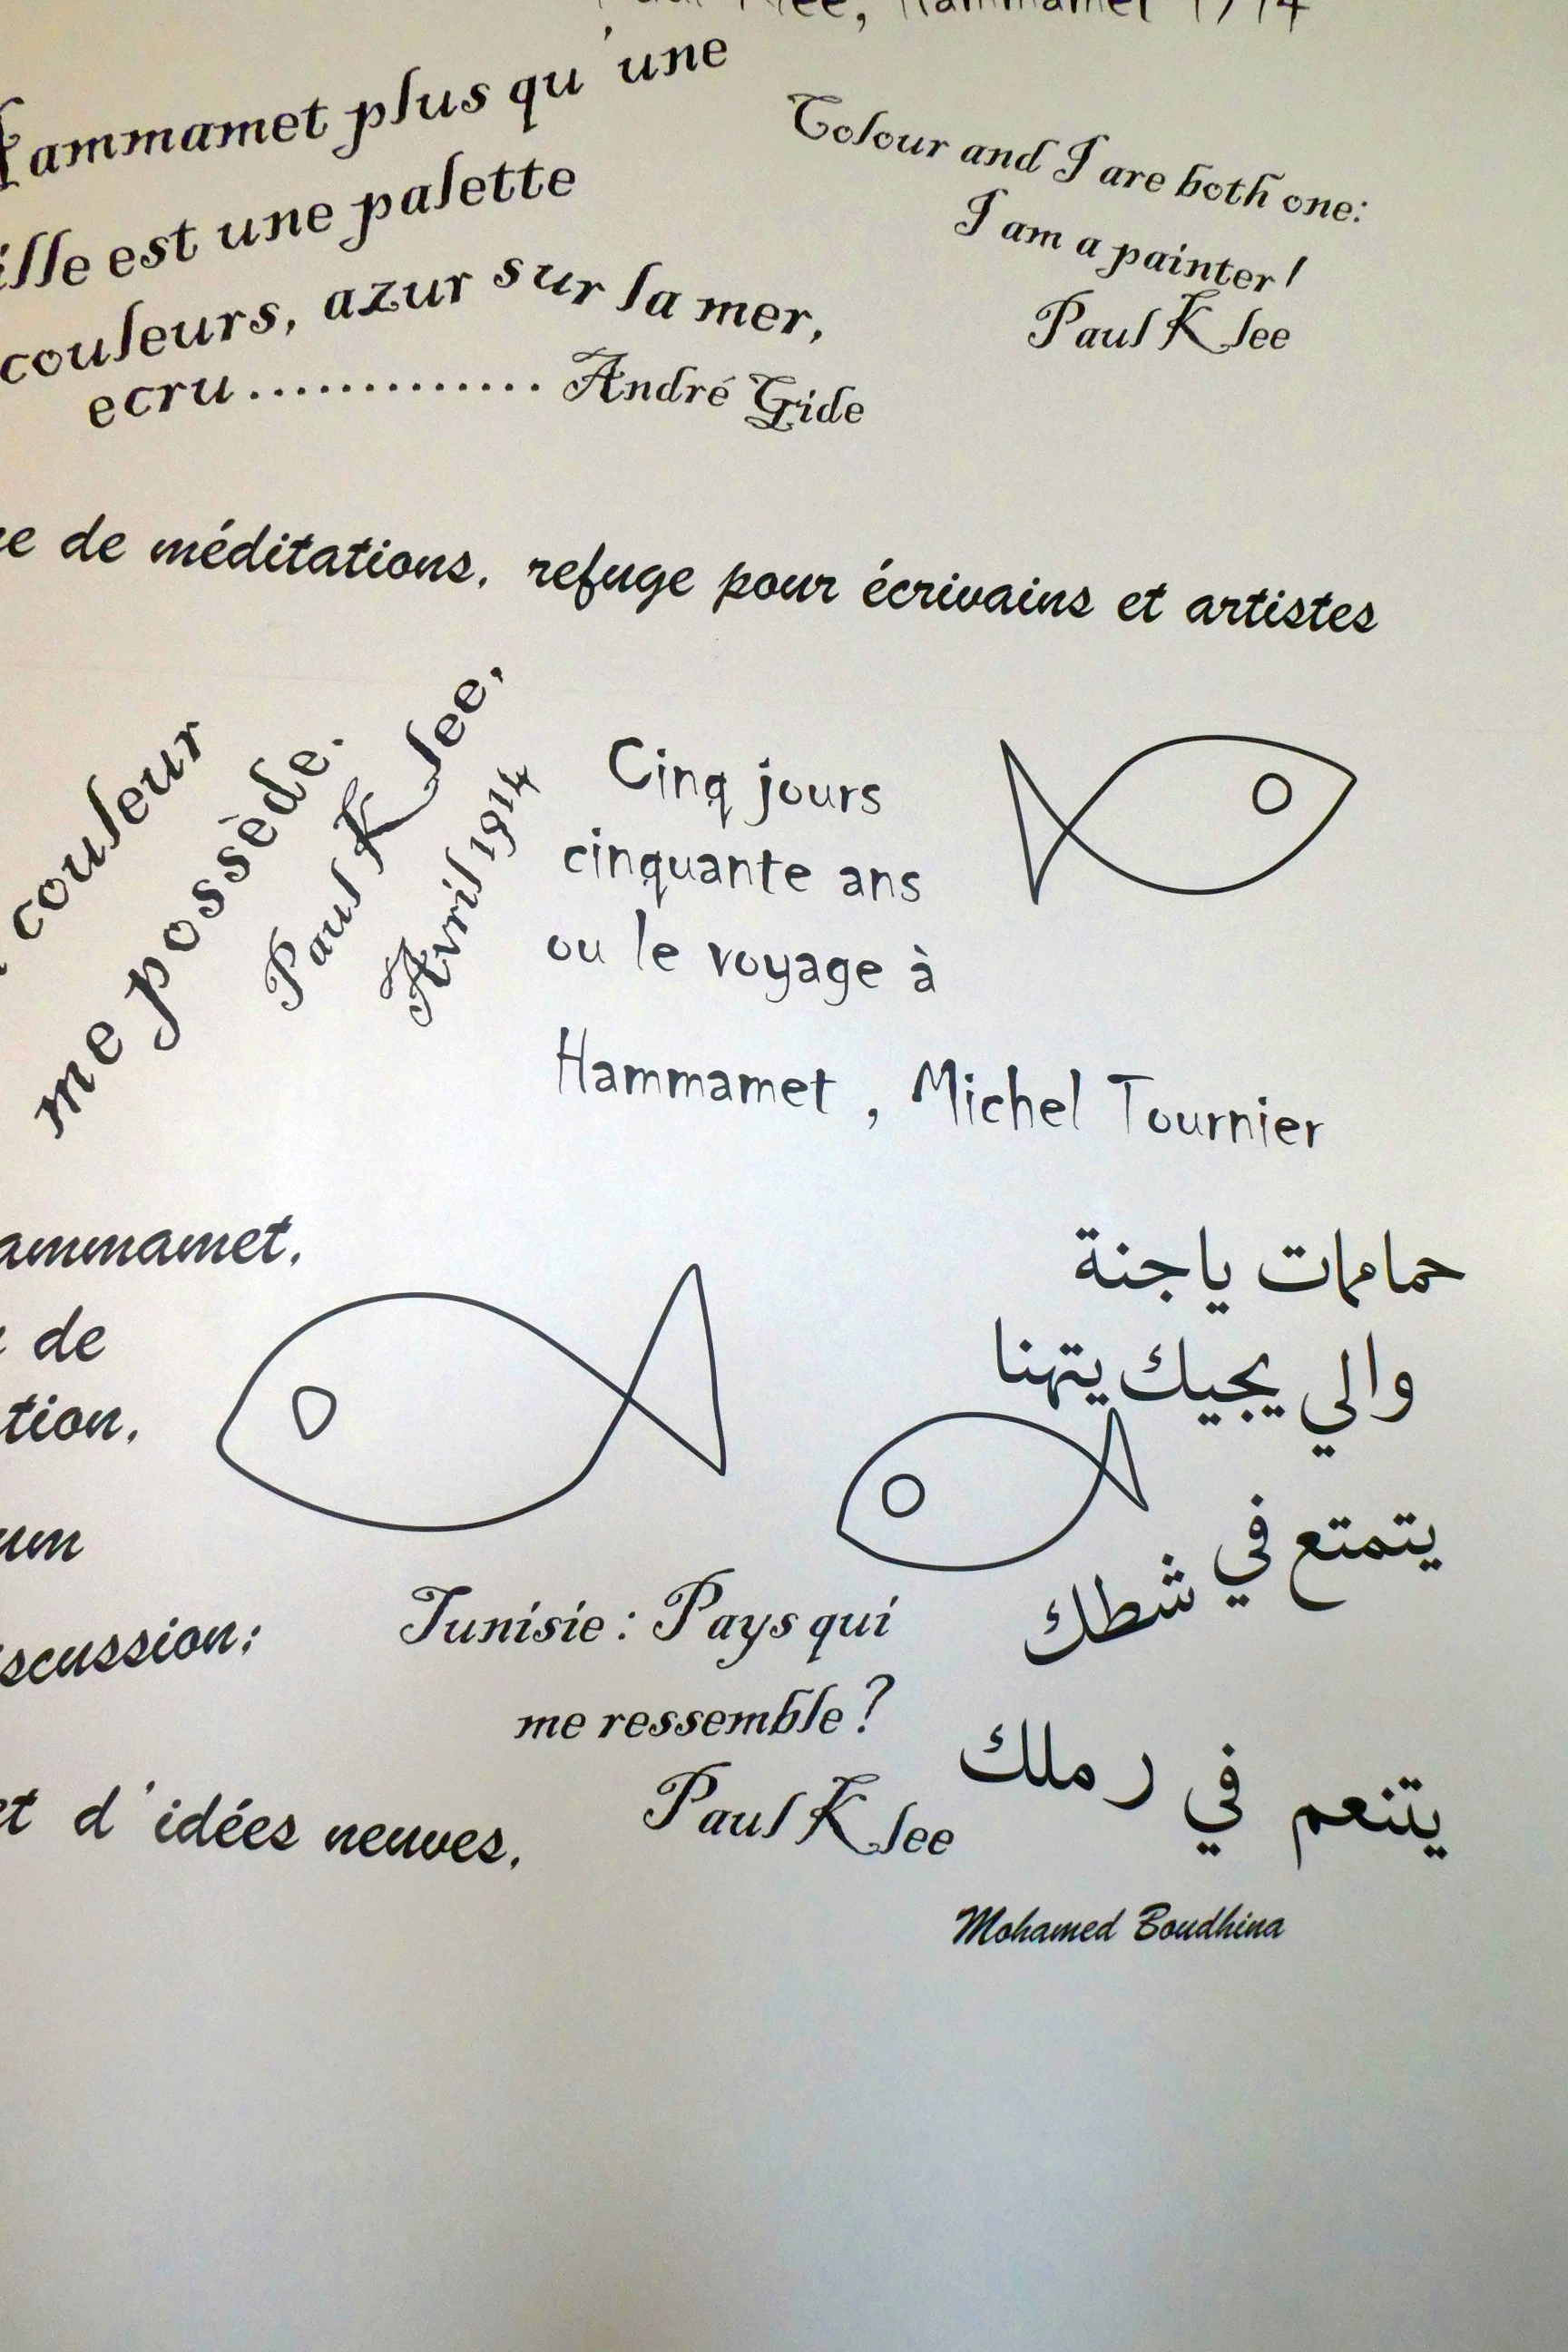 Paul Klee, Hammamet 1914
Hammamet plus qu'une
ille est une palette
couleurs, azur sur la mer,
ecru............. André Gide
Colour and I are both one:
I am a painter!
Paul Klee
de méditations, refuge pour écrivains et artistes
couleur
me possède.
Paul Klee,
Avril 1914
Cinq jours
cinquante ans
ou le voyage à
Hammamet, Michel Tournier
ammamet,
de
tion,
um
scussion;
et d'idées neuves,
Tunisie : Pays qui
me ressemble ?
Paul Klee
حمامات ياجنة
والي يجيك يتهنا
يتمتع في
شطك
يتنعم في رملك
Mohamed Boudhina